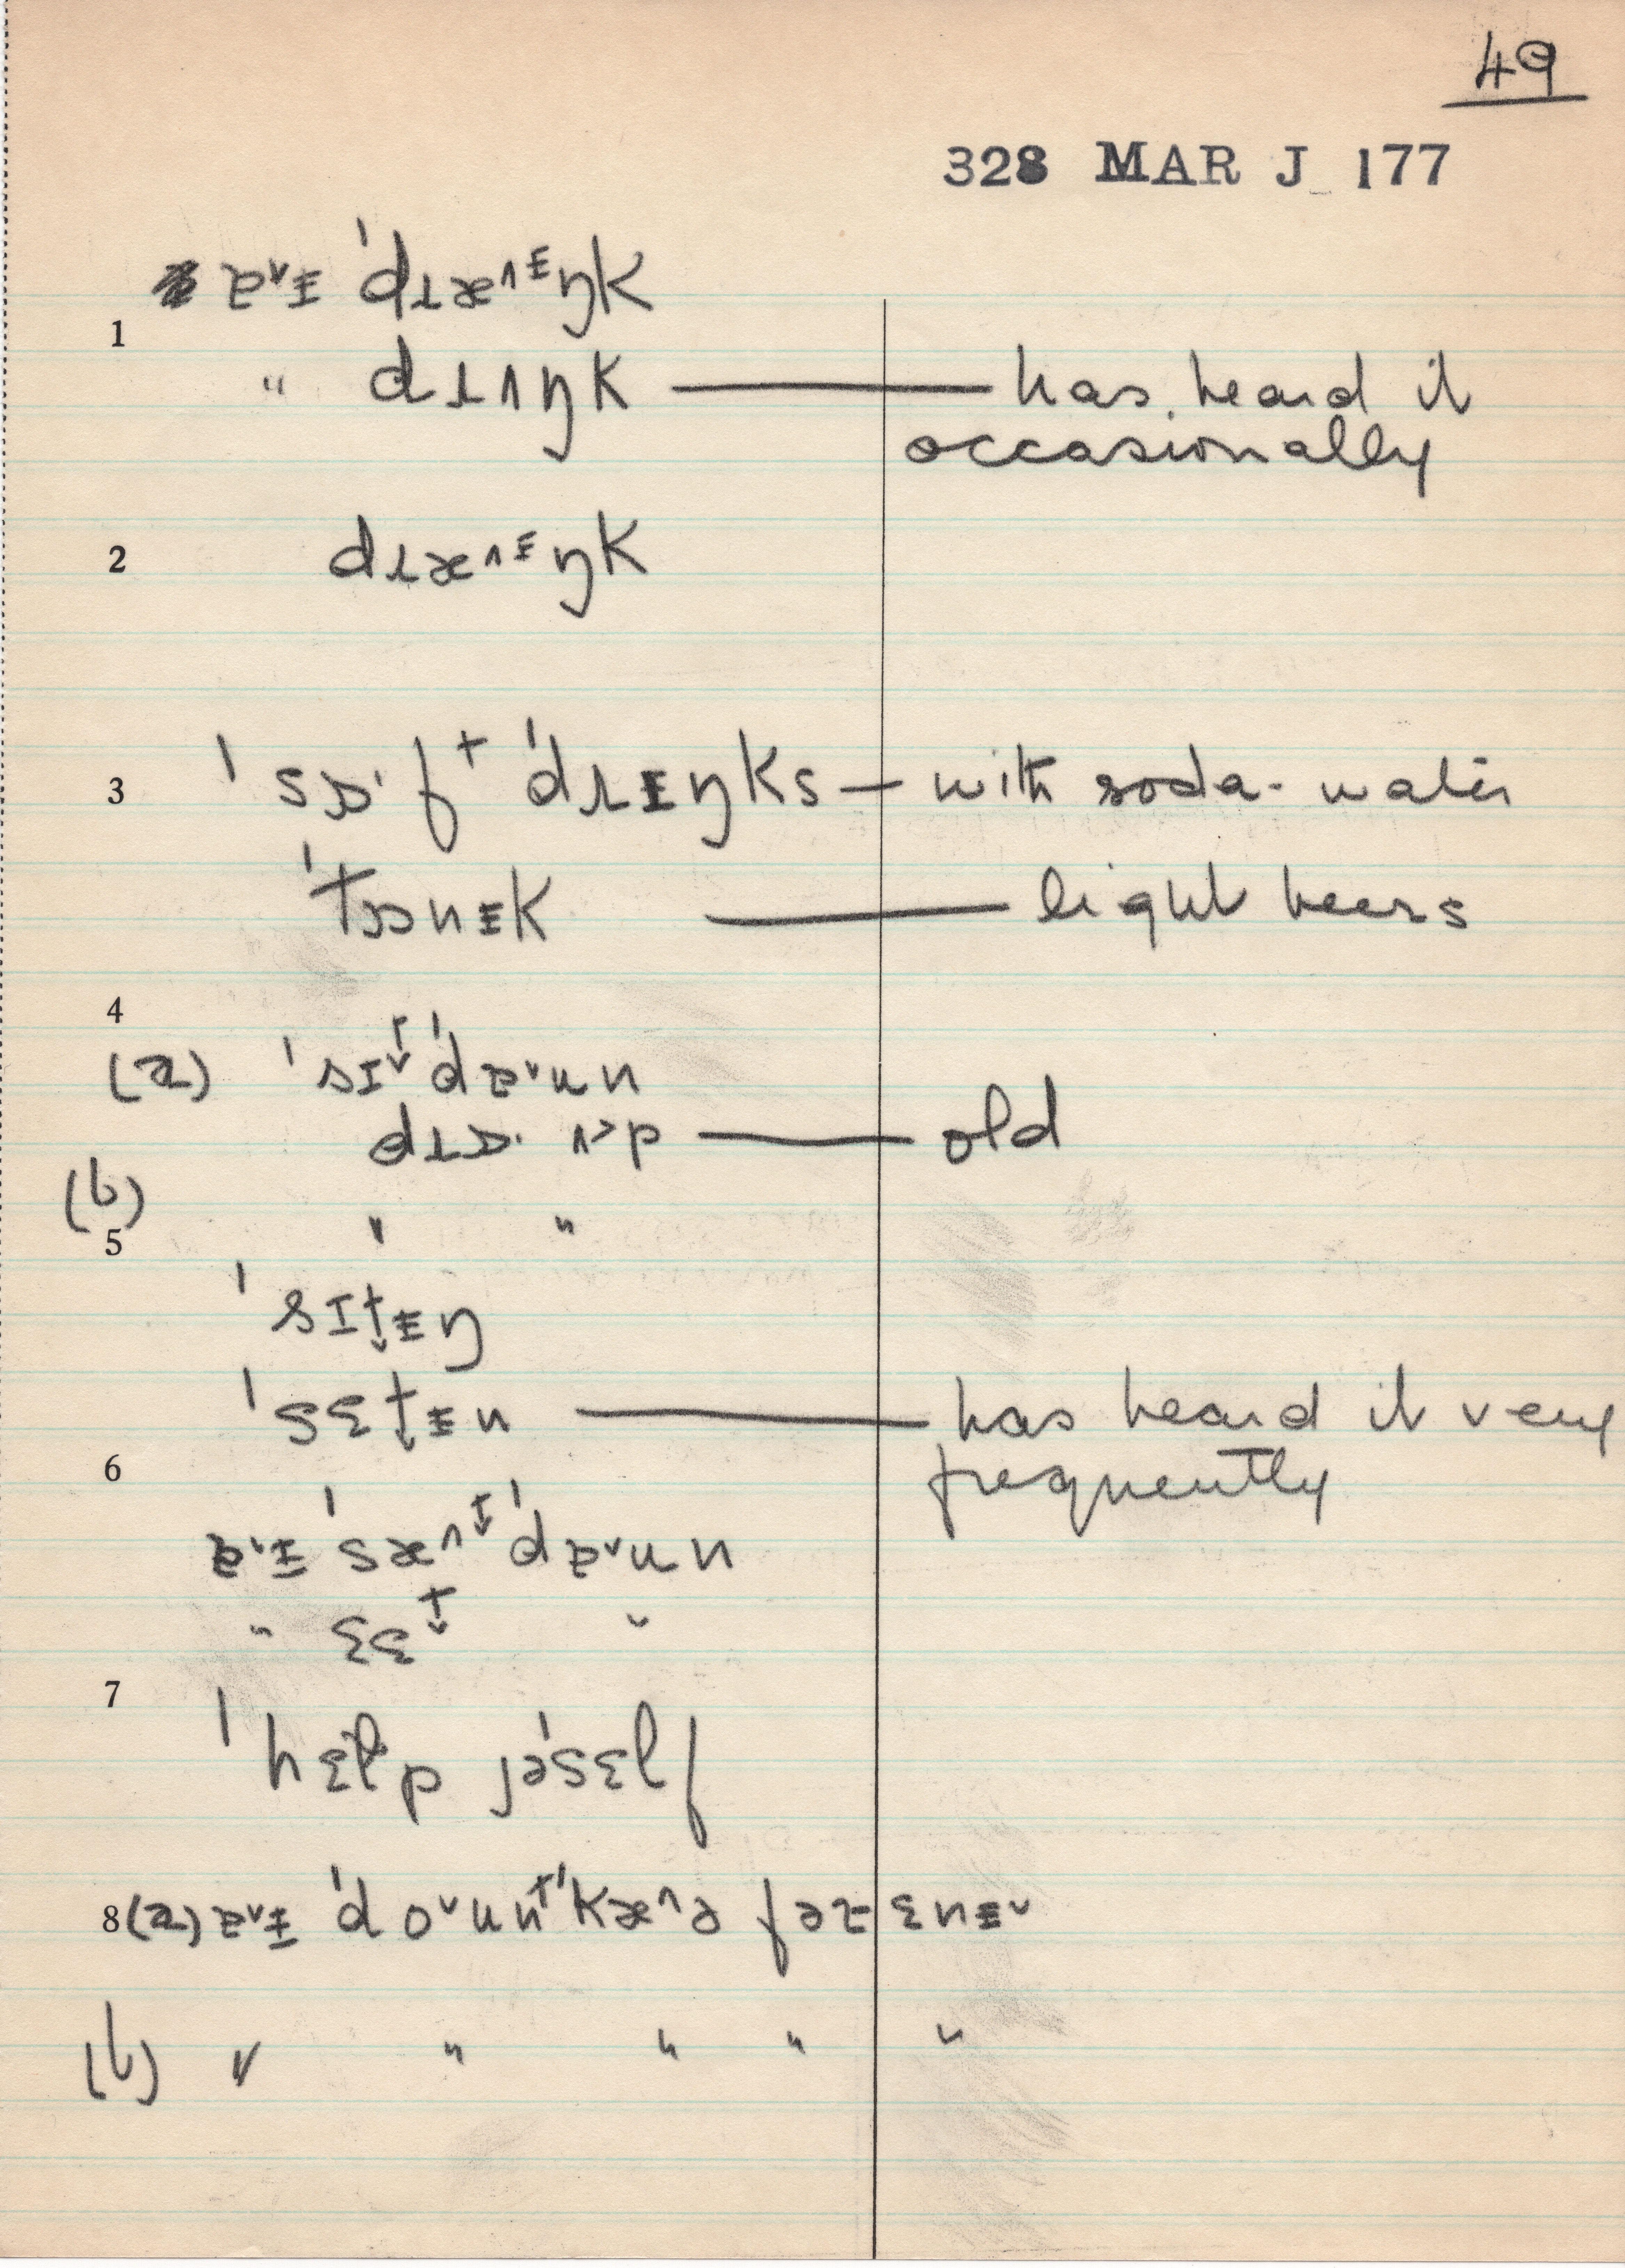 49
328 MAR J 177
ɐ˅ᵻ 'dɹæ˄ᵻŋk
1
" dɹʌŋk — has heard it
occasionally
2 dɹæ˄ᵻŋk
3 'sɒ·f⁺ 'dɹᵻŋks — with soda-water
'tɒnᵻk — light beers
4
(a) 'sɪt̬ 'dɐ˅un
dɹɒ· ʌ˃p — old
(b) " "
5
'sɪt̬ᵻŋ
'sɛt̬ᵻn — has heard it very
6 frequently
ɐ˅ᵻ 'sæ˄t̬ 'dɐ˅un
" sɛt̬ "
7
'hɛlp jə'sɛlf
8 (a) ɐ˅ᵻ 'do˅unᵗ 'kæ˄ə fəɹ ɛnᵻ˅
(b) " " " " "